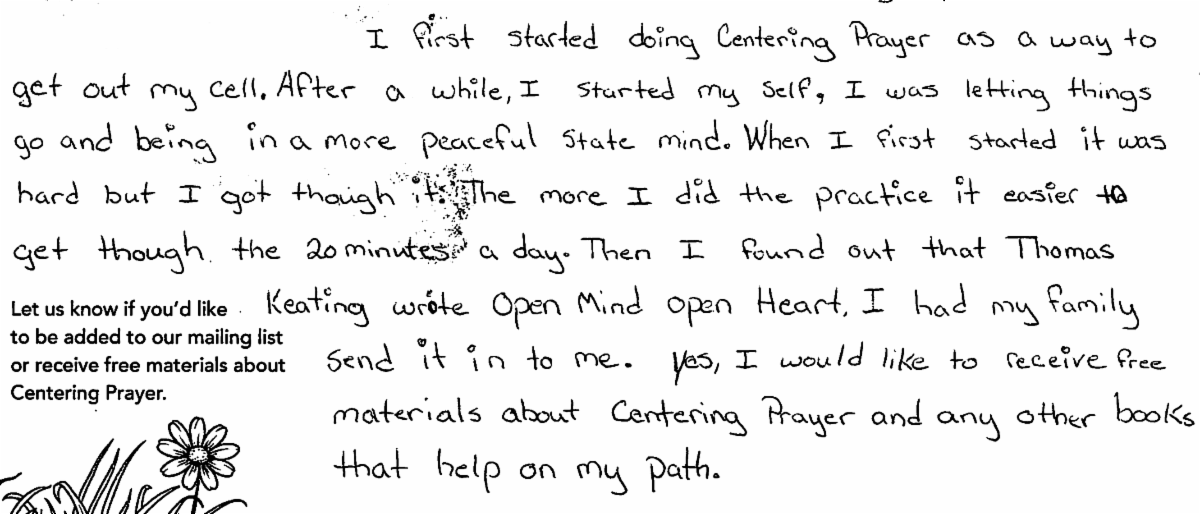 I first started doing Centering Prayer as a way to
get out my cell. After a while, I started my self, I was letting things
go and being in a more peaceful state mind. When I first started it was
hard but I got though it. The more I did the practice it easier to
get though the 20 minutes a day. Then I found out that Thomas
Keating wrote Open Mind open Heart, I had my family
send it in to me. Yes, I would like to receive free
materials about Centering Prayer and any other books
that help on my path.
Let us know if you'd like
to be added to our mailing list
or receive free materials about
Centering Prayer.